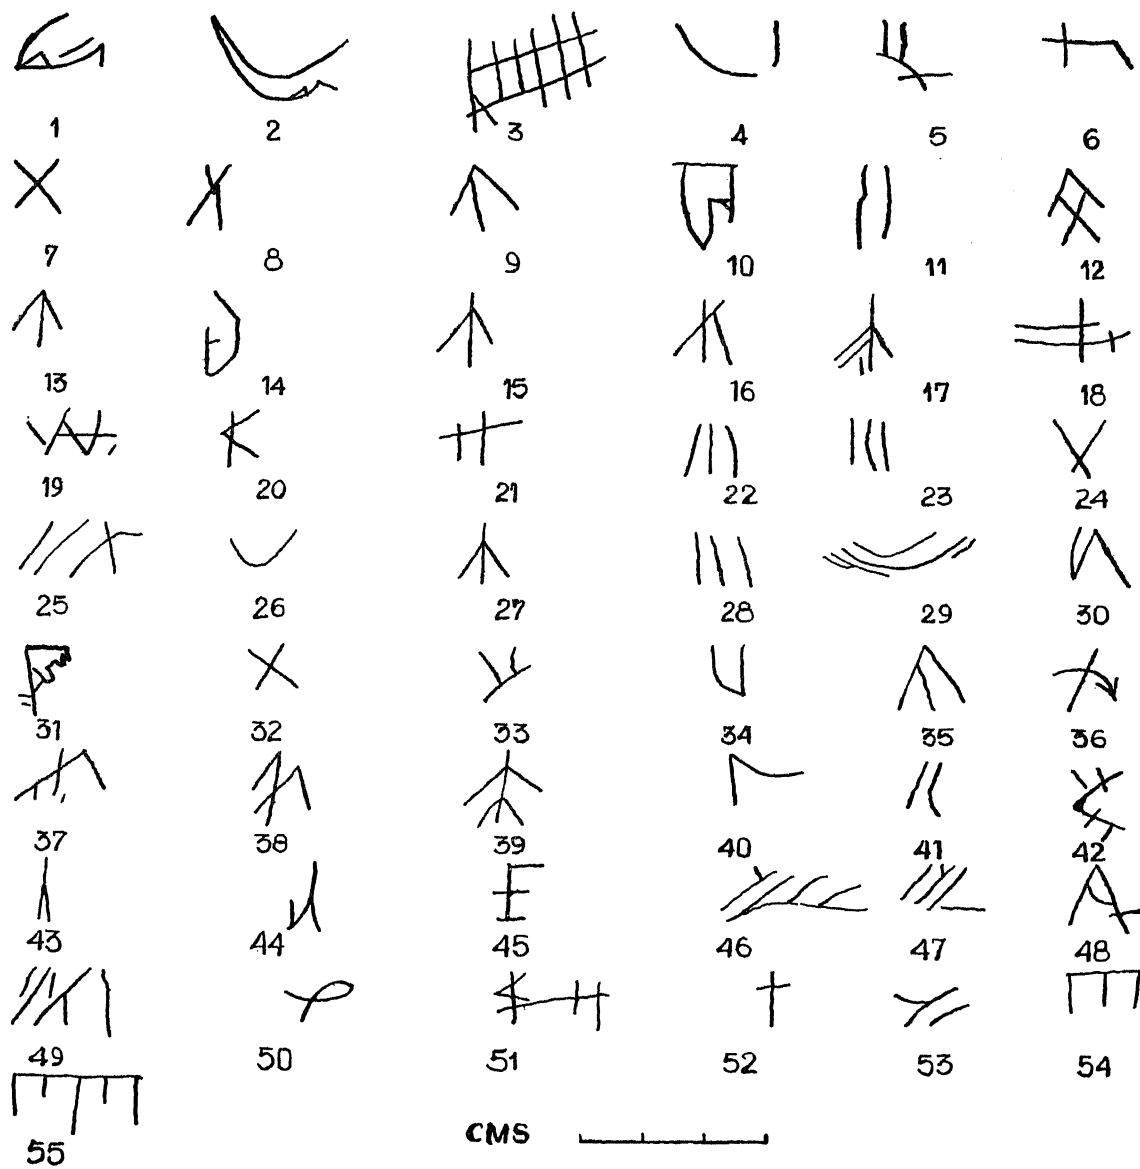 1 2 3 4 5 6
7 8 9 10 11 12
13 14 15 16 17 18
19 20 21 22 23 24
25 26 27 28 29 30
31 32 33 34 35 36
37 38 39 40 41 42
43 44 45 46 47 48
49 50 51 52 53 54
55
CMS